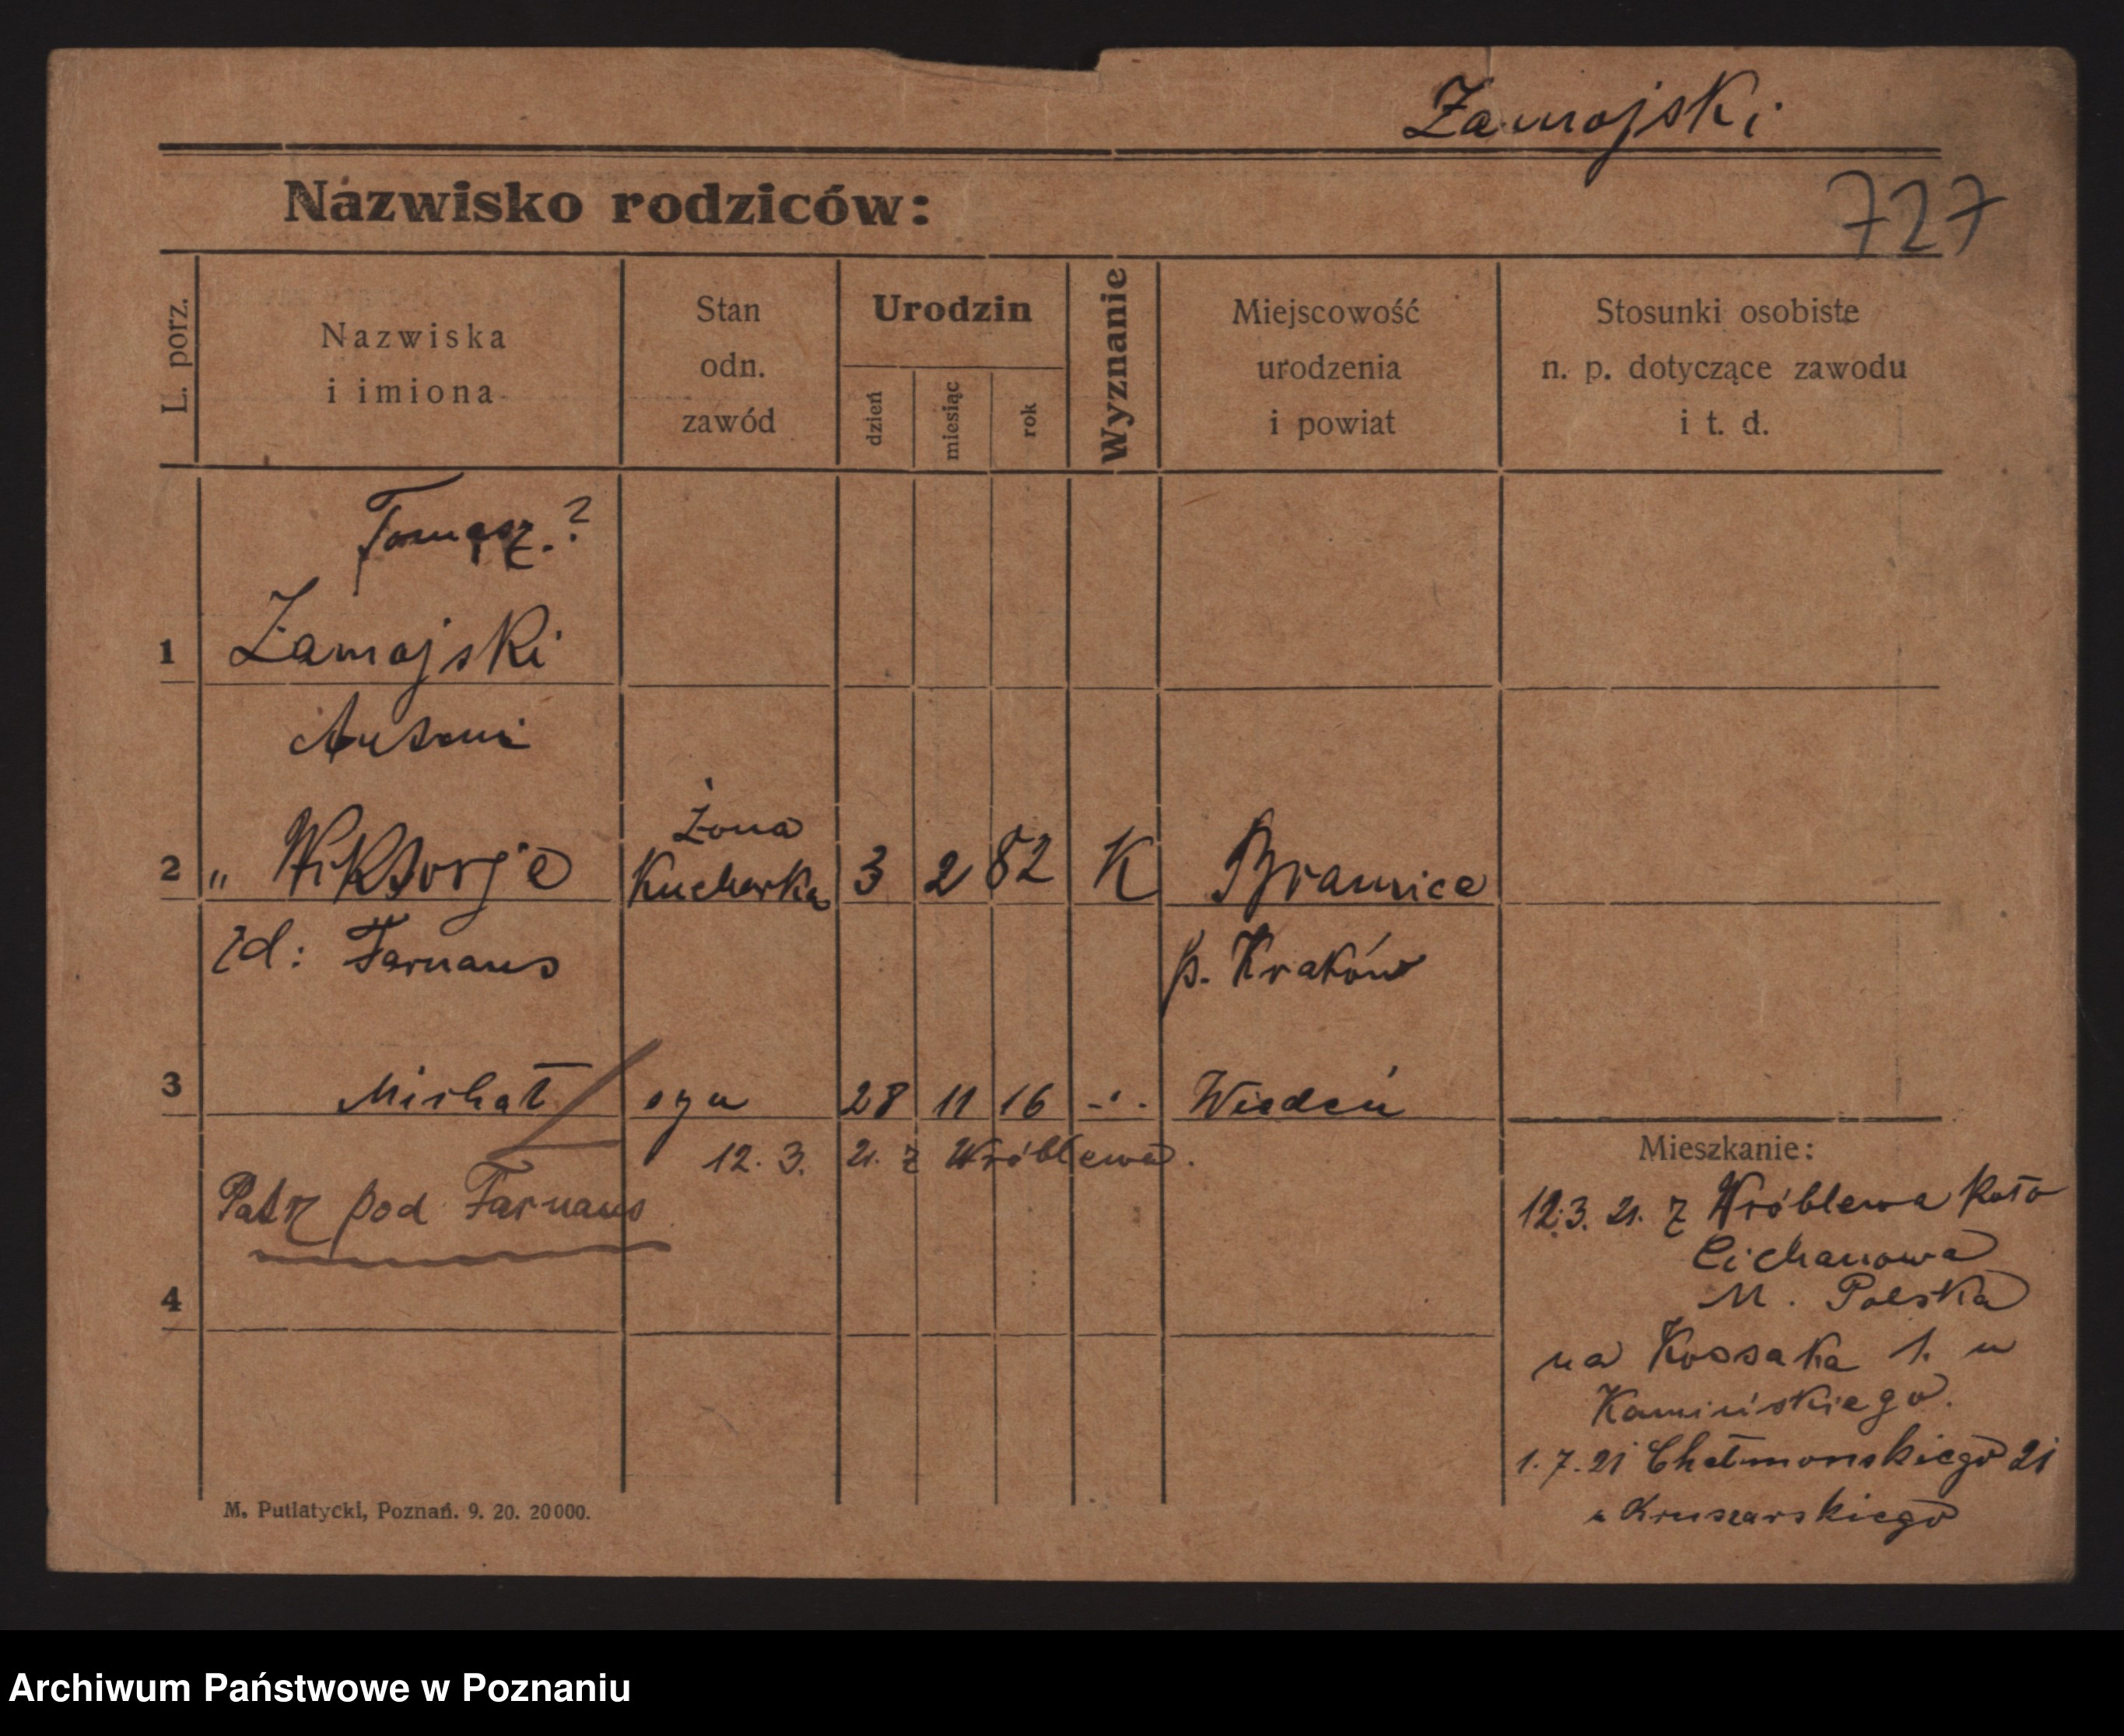 Zamojski
Nazwisko rodziców:
727
L. porz.
Nazwiska
i imiona
Stan
odn.
zawód
Urodzin
dzień
miesiąc
rok
Wyznanie
Miejscowość
urodzenia
i powiat
Stosunki osobiste
n. p. dotyczące zawodu
i t. d.
Tomasz.?
1 Zamojski
Antoni
żona
2 " Wiktorja Kucharka 3 2 82 K Branice
zd: Tarnaus p. Kraków
3 Michał syn 28 11 16 -"- Wiedeń
12. 3. 21. z Wróblewa.
Patrz pod Tarnaus
4
Mieszkanie:
12.3. 21. z Wróblewa koło
Cichanowa
M. Polska
na Kossaka 1. u
Kamińskiego.
1. 7. 21 Chełmonskiego 21
u Kruszarskiego
M. Putiatycki, Poznań. 9. 20. 20000.
Archiwum Państwowe w Poznaniu